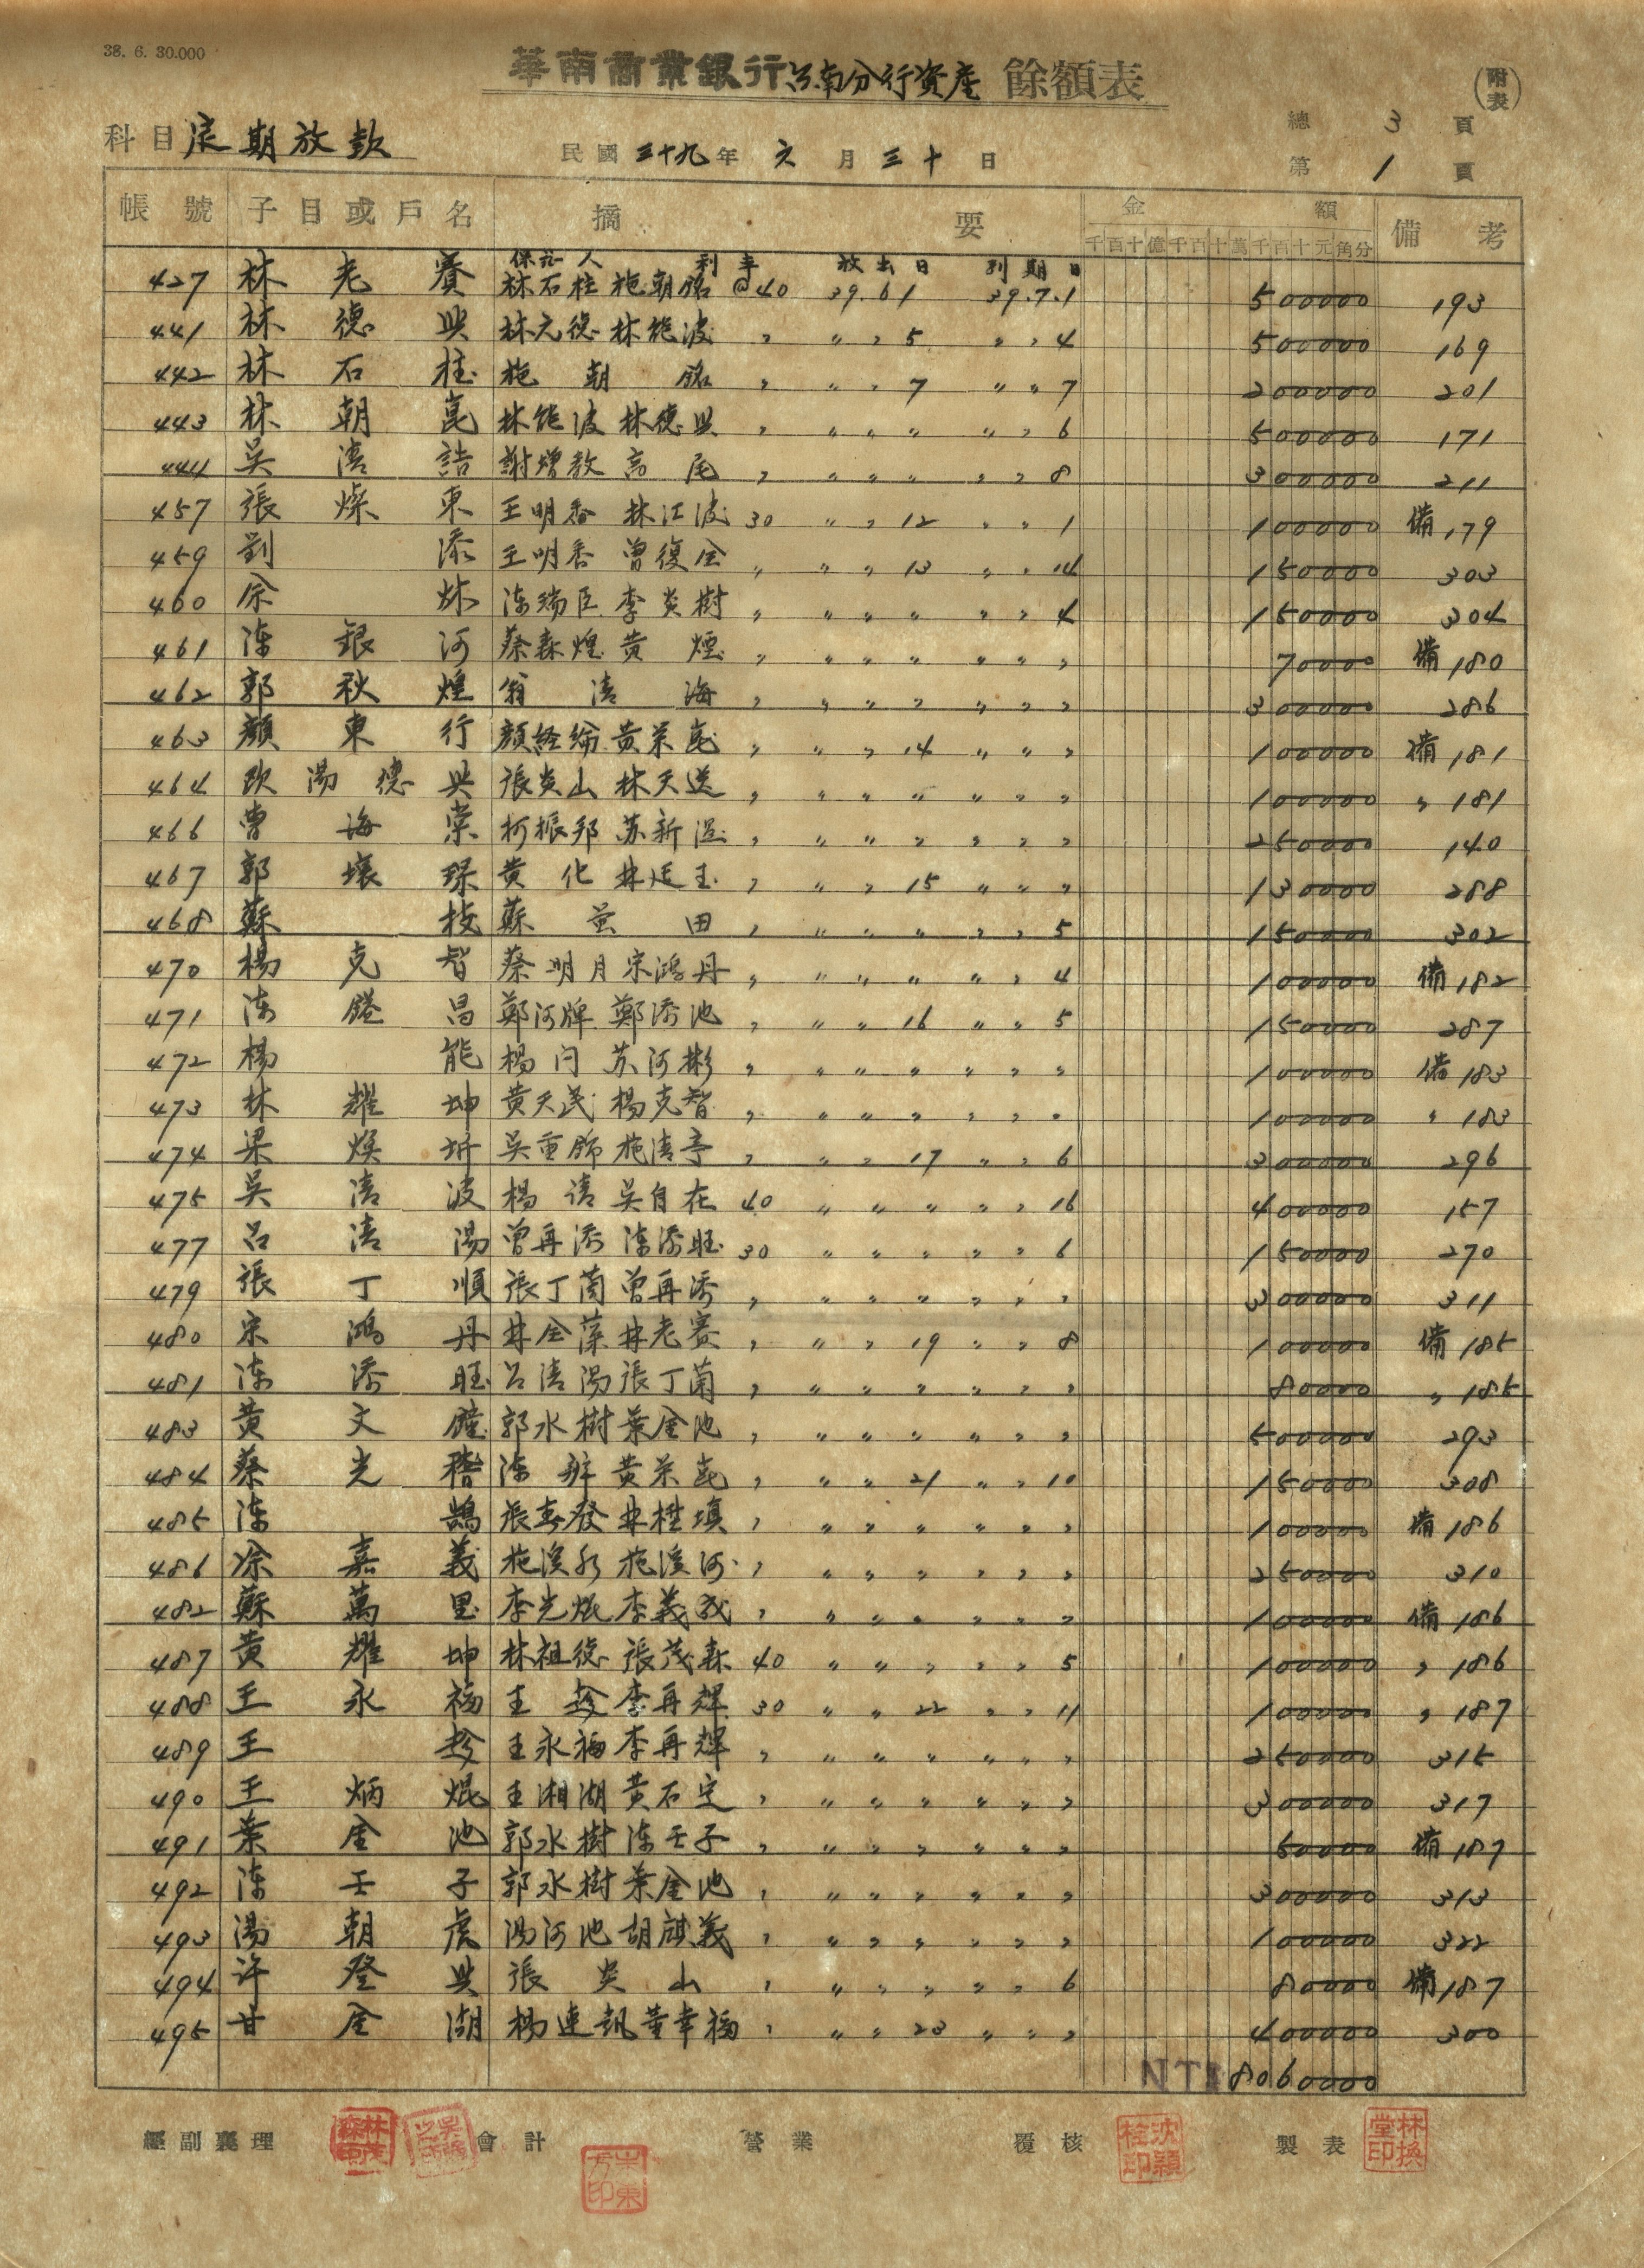 38. 6. 30.000
華南商業銀行台南分行資產 餘額表
(附表)
科目 定期放款
民國 三十九 年 六 月 三十 日
總 3 頁
第 1 頁
帳號 子目或戶名 摘要 金額 備考
千百十億千百十萬千百十元角分
保証人 利率 放出日 到期日
427 林老賽 林石柱 施朝銘 @40 39.6.1 39.7.1 500000 193
441 林德興 林元德 林能波 〃 〃 〃 5 〃 〃 4 500000 169
442 林石柱 施朝銘 〃 〃 〃 7 〃 〃 7 200000 201
443 林朝崑 林能波 林德興 〃 〃 〃 〃 〃 〃 6 500000 171
444 吳清誥 謝增教 高尾 〃 〃 〃 〃 〃 〃 8 300000 211
457 張燦東 王明香 林江波 30 〃 〃 12 〃 〃 1 100000 備179
459 劉添 王明香 曾復全 〃 〃 〃 13 〃 〃 14 150000 303
460 余炑 陈瑞臣 李炎樹 〃 〃 〃 〃 〃 〃 4 150000 304
461 陈銀河 蔡森煌 黄煙 〃 〃 〃 〃 〃 〃 〃 70000 備180
462 郭秋煌 翁清海 〃 〃 〃 〃 〃 〃 〃 300000 286
463 顏東行 顏経綸 黄荣崑 〃 〃 〃 14 〃 〃 〃 100000 備181
464 欧湯德興 張炎山 林天送 〃 〃 〃 〃 〃 〃 〃 100000 〃181
466 曹海棠 柯振邦 苏新湿 〃 〃 〃 〃 〃 〃 〃 250000 140
467 郭壊琛 黄化 林廷玉 〃 〃 〃 15 〃 〃 〃 130000 288
468 蘇技 蘇蚩田 〃 〃 〃 〃 〃 〃 5 150000 302
470 楊克智 蔡明月 宋鴻丹 〃 〃 〃 〃 〃 〃 4 100000 備182
471 陈鏗昌 鄭河牌 鄭添池 〃 〃 〃 16 〃 〃 5 150000 287
472 楊能 楊闩 苏河彬 〃 〃 〃 〃 〃 〃 〃 100000 備183
473 林耀坤 黄天民 楊克智 〃 〃 〃 〃 〃 〃 〃 100000 〃183
474 梁煥圻 吳重飾 施清亭 〃 〃 〃 17 〃 〃 6 300000 296
475 吳清波 楊清 吳自在 40 〃 〃 〃 〃 〃 16 400000 157
477 呂清湯 曾再添 陈添旺 30 〃 〃 〃 〃 〃 6 150000 270
479 張丁順 張丁蘭 曾再添 〃 〃 〃 〃 〃 〃 〃 300000 311
480 宋鴻丹 林全藻 林老賽 〃 〃 〃 19 〃 〃 8 100000 備185
481 陈添旺 呂清湯 張丁蘭 〃 〃 〃 〃 〃 〃 〃 80000 〃185
483 黄文鐘 郭水樹 葉金池 〃 〃 〃 〃 〃 〃 〃 500000 293
484 蔡光稽 陈辦 黄荣崑 〃 〃 〃 21 〃 〃 10 150000 308
485 陈鵠 張春發 林樁填 〃 〃 〃 〃 〃 〃 〃 100000 備186
486 涂嘉義 施溪水 施溪河 〃 〃 〃 〃 〃 〃 〃 250000 310
482 蘇萬里 李光焜 李義成 〃 〃 〃 〃 〃 〃 〃 100000 備186
487 黄耀坤 林祖德 張茂森 40 〃 〃 〃 〃 〃 5 100000 〃186
488 王永福 王趁 李再輝 30 〃 〃 22 〃 〃 11 100000 〃187
489 王趁 王永福 李再輝 〃 〃 〃 〃 〃 〃 〃 250000 315
490 王炳焜 王湘湖 黄石定 〃 〃 〃 〃 〃 〃 〃 300000 317
491 葉金池 郭水樹 陈壬子 〃 〃 〃 〃 〃 〃 〃 50000 備187
492 陈壬子 郭水樹 葉金池 〃 〃 〃 〃 〃 〃 〃 300000 313
493 湯朝虎 湯河池 胡旗義 〃 〃 〃 〃 〃 〃 〃 100000 322
494 许登興 張炎山 〃 〃 〃 〃 〃 〃 6 80000 備187
495 甘金湖 楊連訊 董幸福 〃 〃 〃 23 〃 〃 〃 400000 300
NT$ 8060000
經副襄理 會計 營業 覆核 製表
林換堂印